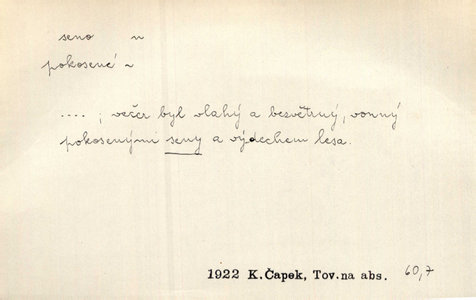 seno n
pokosené ~
.... ; večer byl vlahý a bezvětrný, vonný
pokosenými seny a výdechem lesa.
1922 K.Čapek, Tov.na abs. 60,7